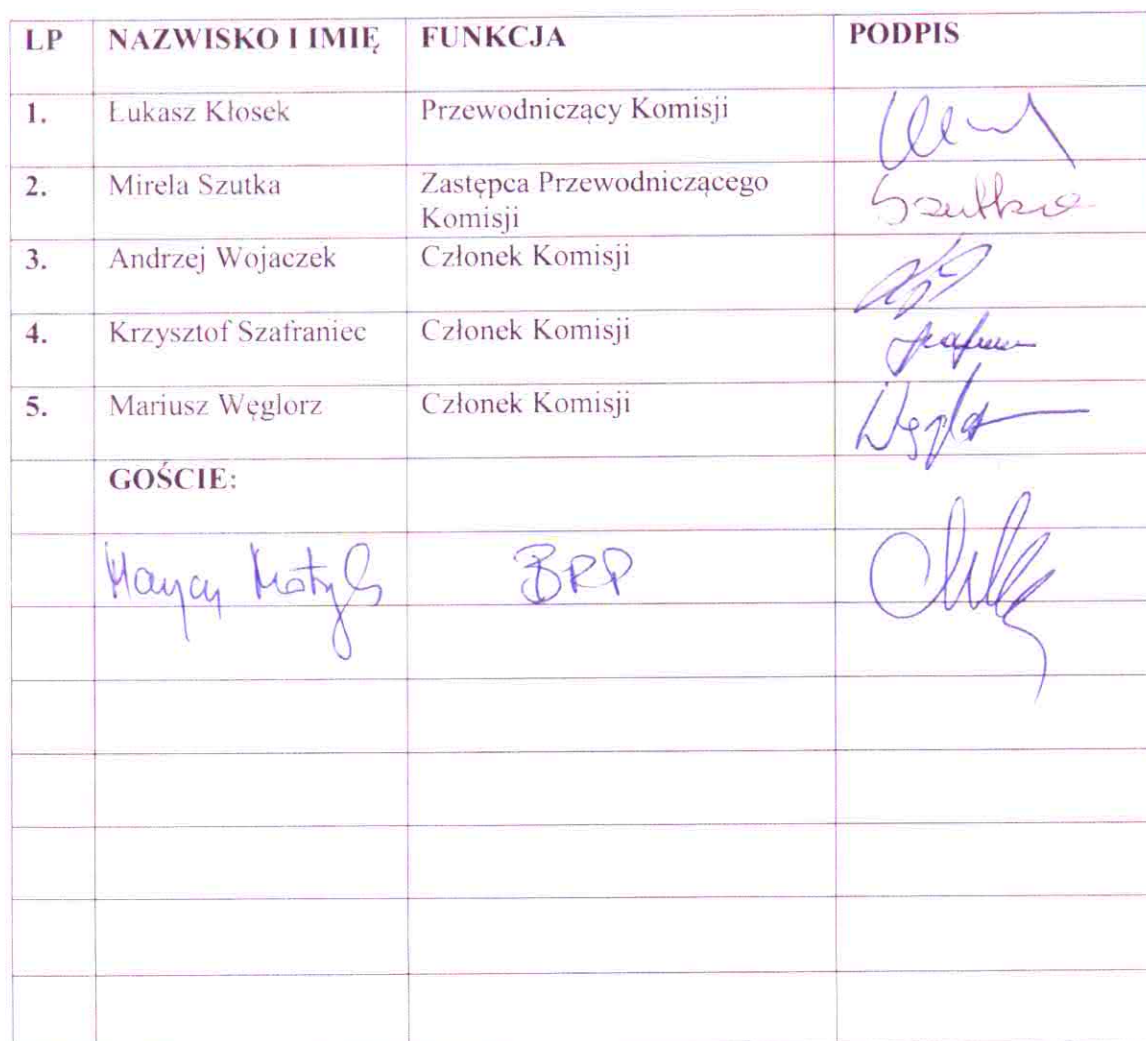 LP NAZWISKO I IMIĘ FUNKCJA PODPIS
1. Łukasz Kłosek Przewodniczący Komisji
2. Mirela Szutka Zastępca Przewodniczącego Komisji Szutka
3. Andrzej Wojaczek Członek Komisji
4. Krzysztof Szafraniec Członek Komisji
5. Mariusz Węglorz Członek Komisji
GOŚCIE:
BRP